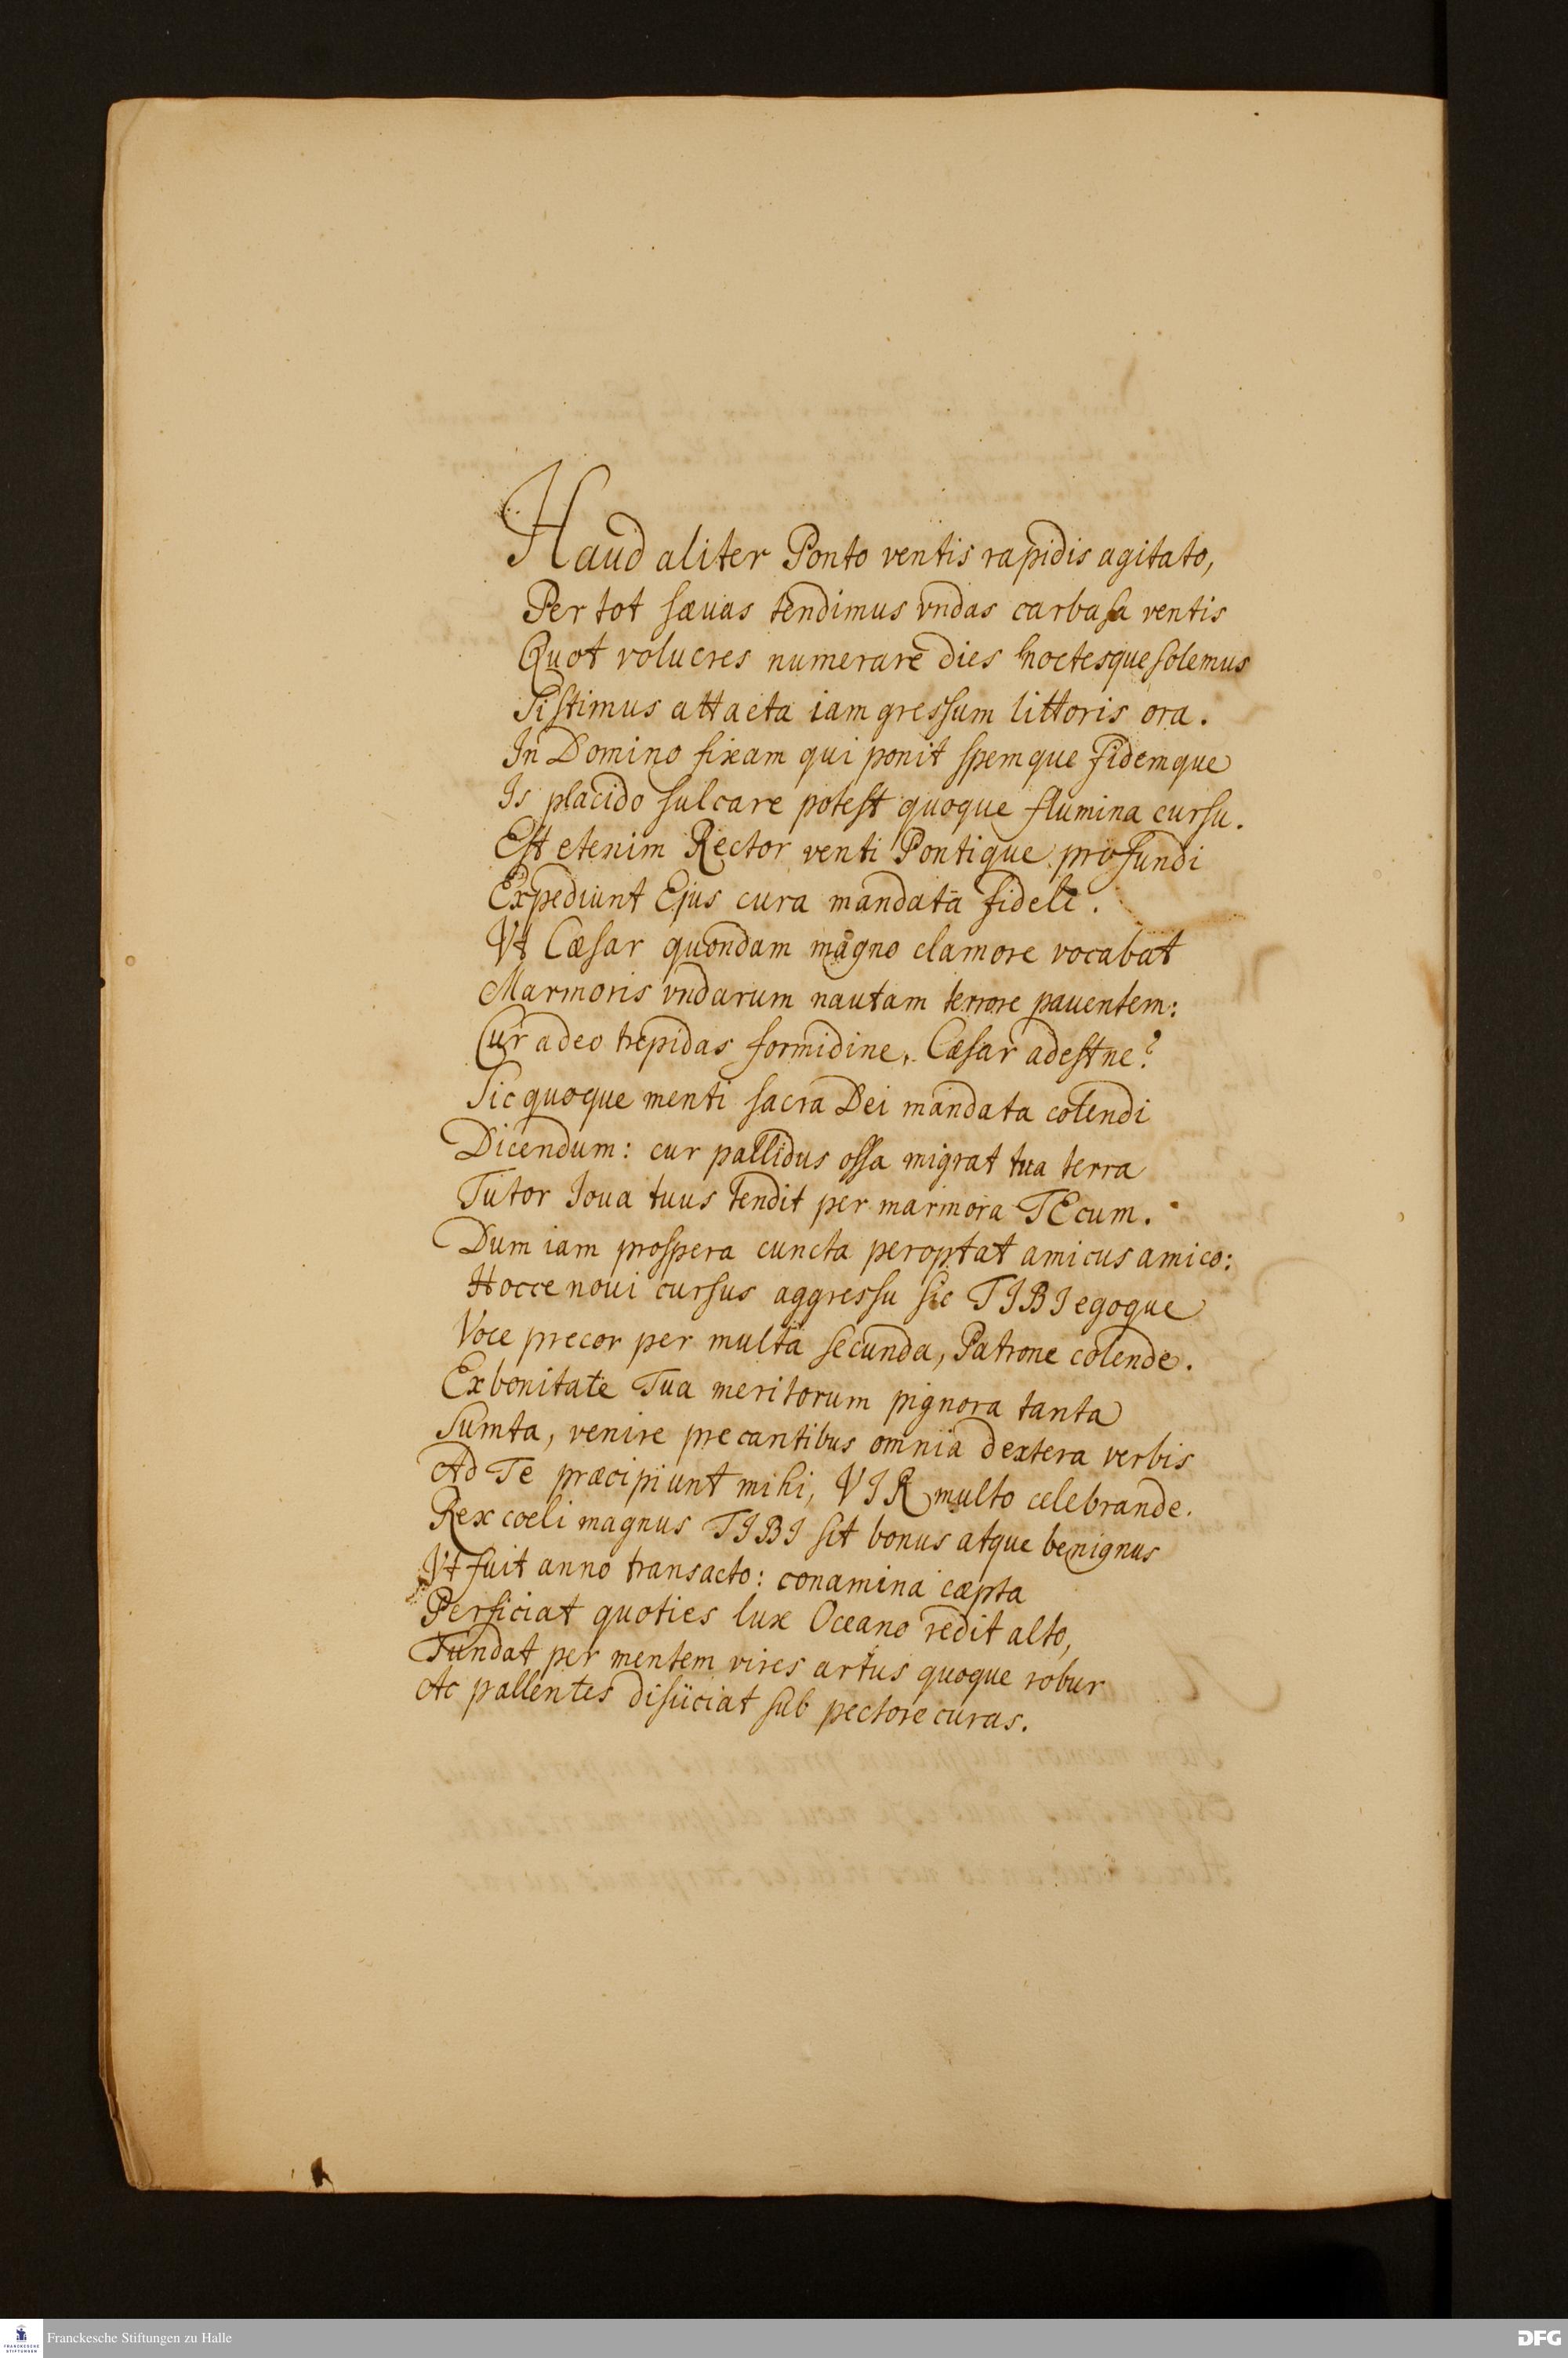 Haud aliter Ponto ventis rapidis agitato,
Per tot sæuas tendimus vndas carbasa ventis
Quot volucres numerare dies noctesque solemus
Sistimus attacta iam gressum littoris ora.
In Domino fixam qui ponit spemque fidemque
Is placido sulcare potest quoque flumina cursu.
Est etenim Rector venti Pontique profundi
Expediunt Ejus cura mandata fideli.
Vt Cæsar quondam magno clamore vocabat
Marmoris vndarum nautam terrore pauentem:
Cur adeo trepidas formidine, Cæsar adestne?
Sic quoque menti sacra Dei mandata colendi
Dicendum: cur pallidus ossa migrat tua terra
Tutor Ioua tuus tendit per marmora TEcum.
Dum iam prospera cuncta peroptat amicus amico:
Hocce noui cursus aggressu sic TIBI egoque
Voce precor per multa secunda, Patrone colende.
Ex bonitate Tua meritorum pignora tanta
Sumta, venire precantibus omnia dextera verbis
Ad Te præcipiunt mihi, VIR multo celebrande.
Rex coeli magnus TIBI sit bonus atque benignus
Vt fuit anno transacto: conamina cæpta
Perficiat quoties lux Oceano redit alto,
Fundat per mentem vires artus quoque robur
Ac pallentes disiiciat sub pectore curas.
Franckesche Stiftungen zu Halle
FRANCKESCHE
STIFTUNGEN
DFG